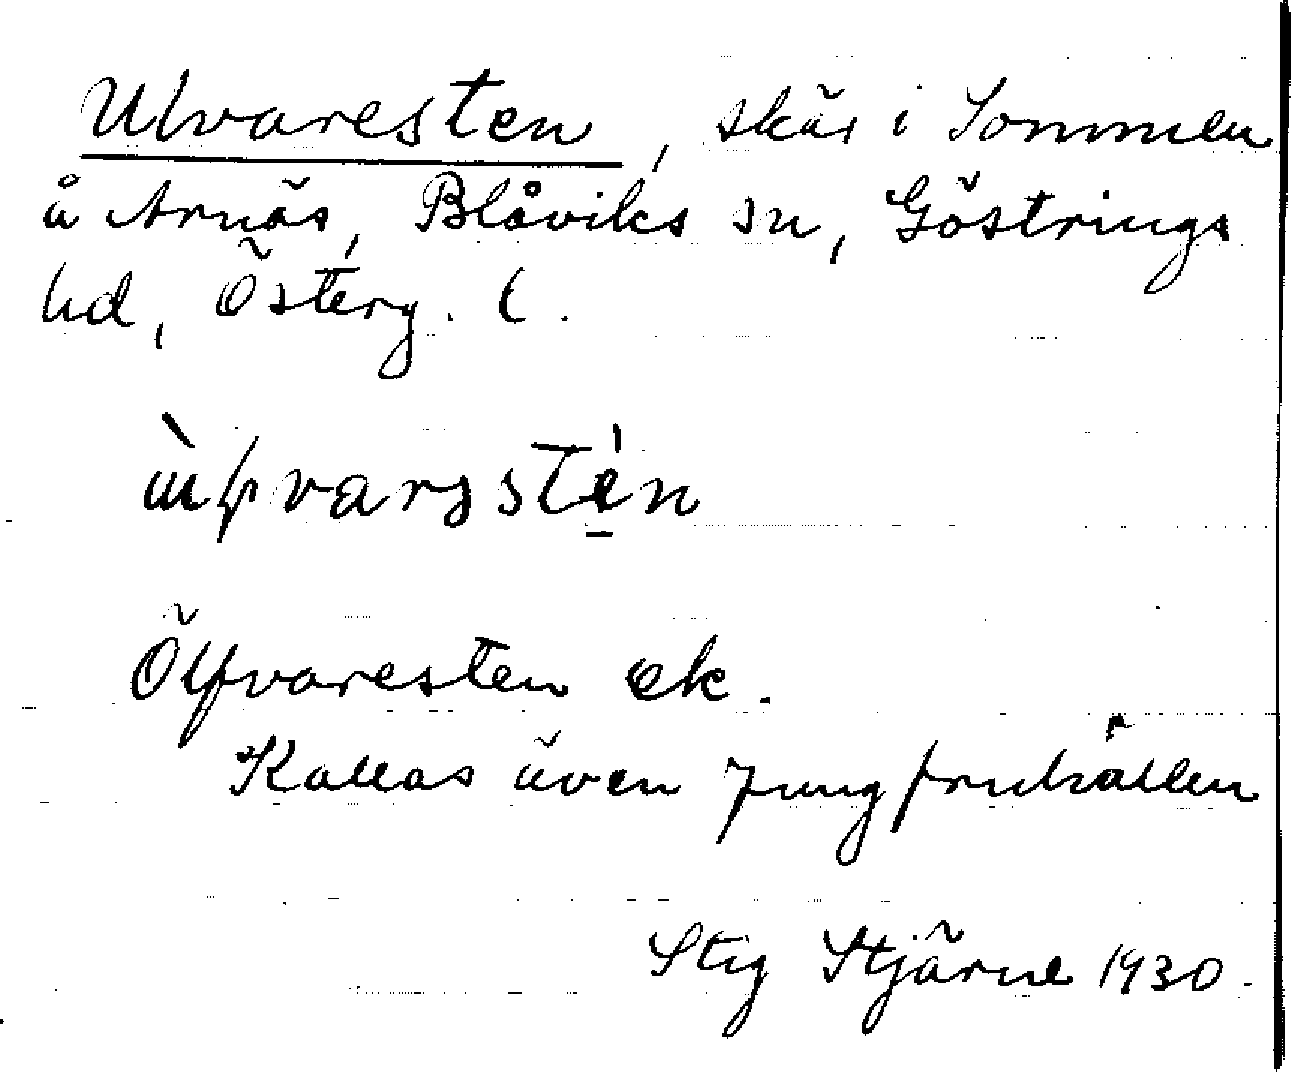 Ulvaresten, skär i Sommen
å Arnäs, Blåviks sn, Göstrings
hd, Österg. l.
Ölfvaresten ek.
Kallas även Jungfruhällen
Stig Stjärne 1930.